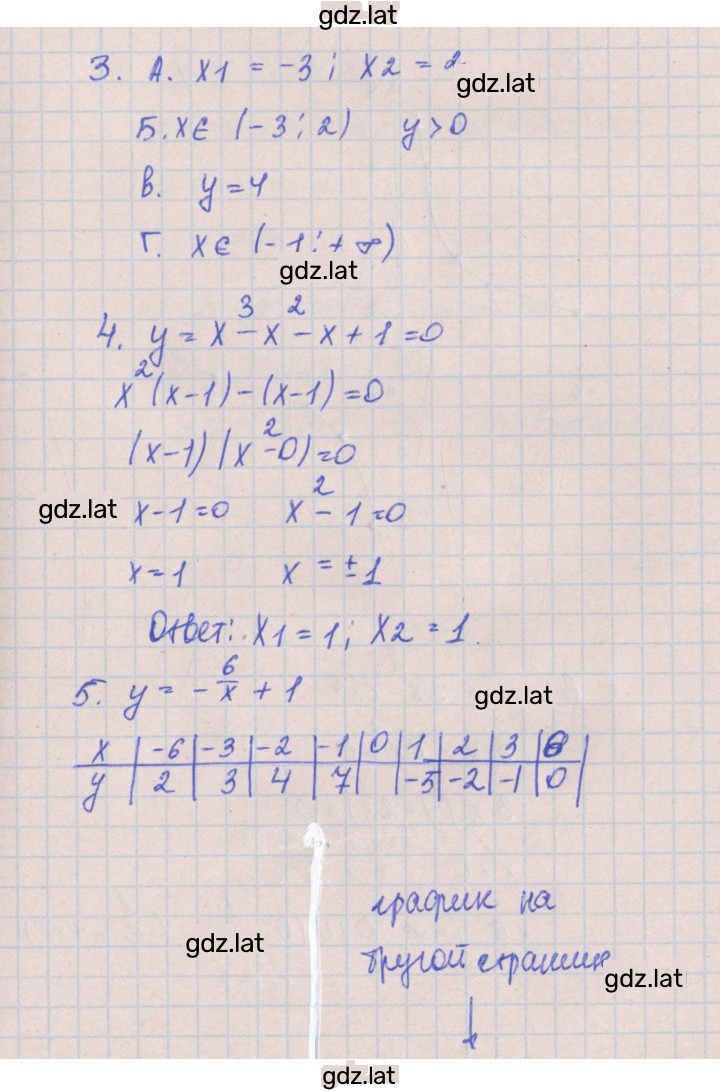 gdz.lat
3. А. x1 = -3; x2 = 2
gdz.lat
Б. x∈ (-3; 2) y>0
В. y=4
Г. x∈ (-1; +∞)
gdz.lat
4. y = x³-x²-x+1=0
x²(x-1)-(x-1)=0
(x-1)(x²-0)=0
gdz.lat
x-1=0 x²-1=0
x=1 x=±1
Ответ: x1=1; x2=1
5. y = -6/x + 1
gdz.lat
x | -6 | -3 | -2 | -1 | 0 | 1 | 2 | 3 | 6
y | 2 | 3 | 4 | 7 | | -5 | -2 | -1 | 0
график на
gdz.lat
другой странице
gdz.lat
gdz.lat